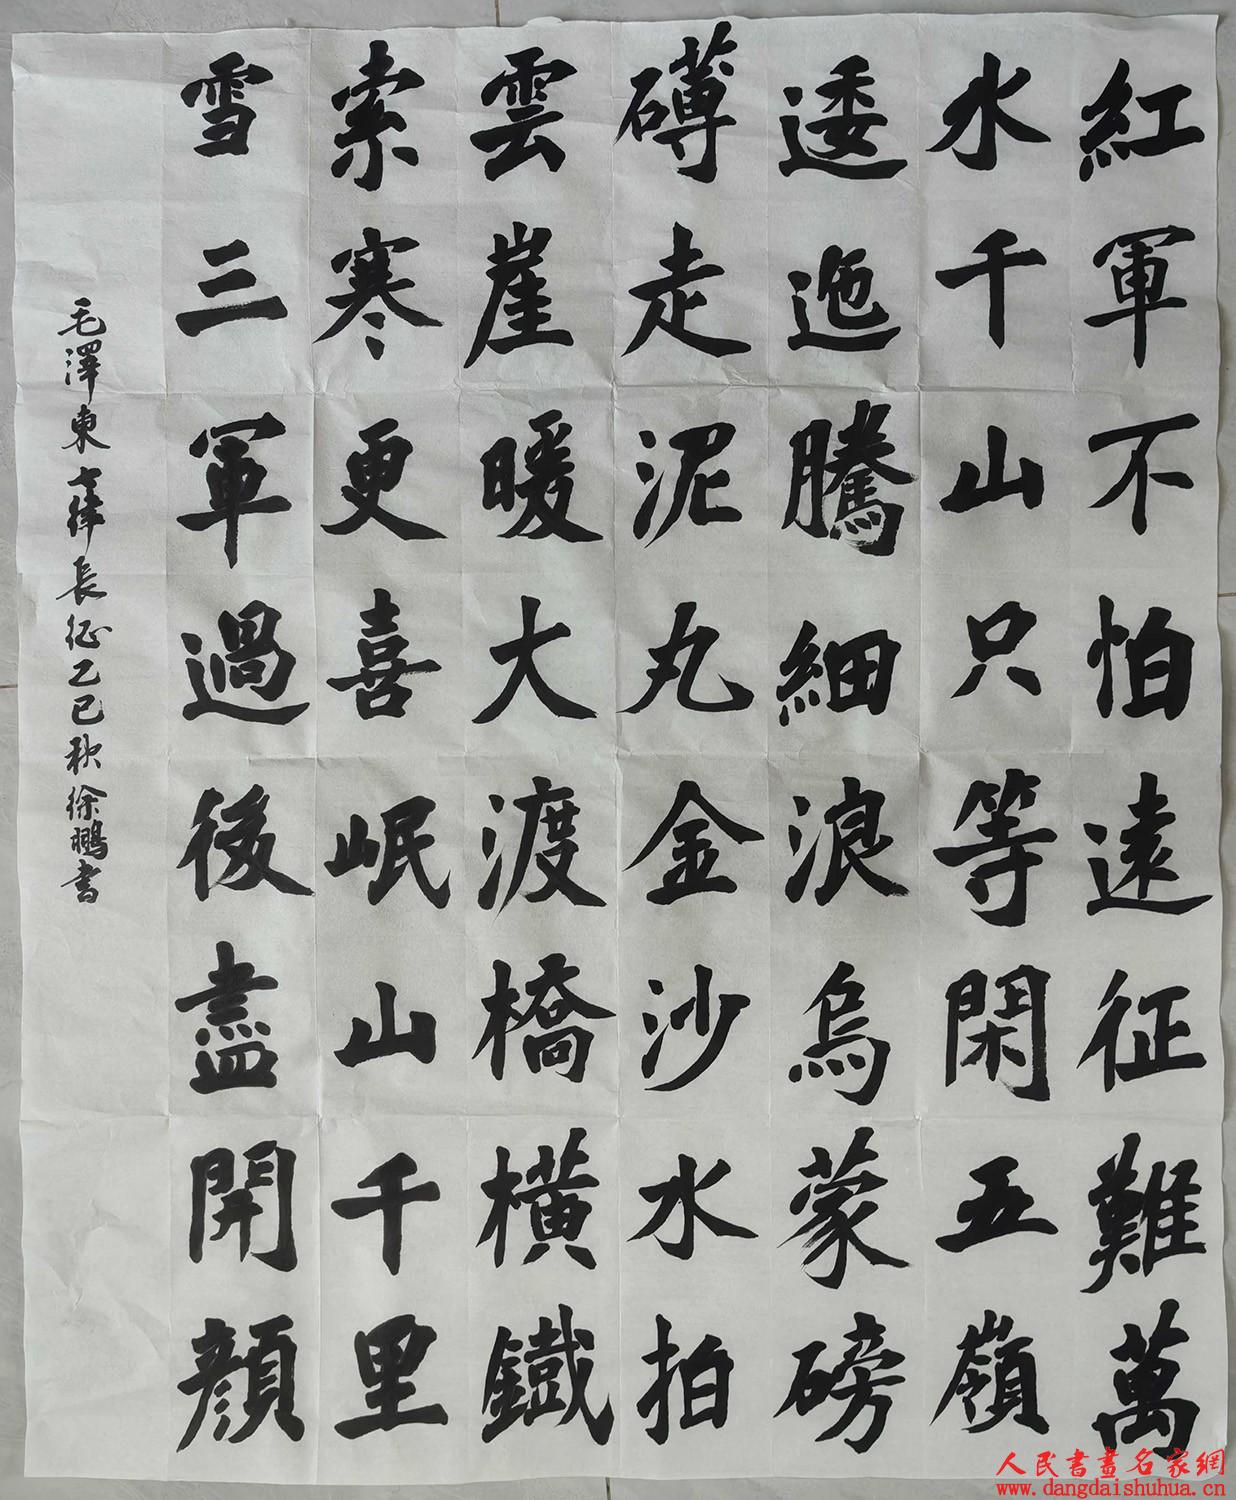 紅軍不怕遠征難萬
水千山只等閑五嶺
逶迤騰細浪烏蒙磅
礴走泥丸金沙水拍
雲崖暖大渡橋橫鐵
索寒更喜岷山千里
雪三軍過後盡開顏
毛澤東七律長征乙巳秋徐鵬書
人民書畫名家網
www.dangdaishuhua.cn